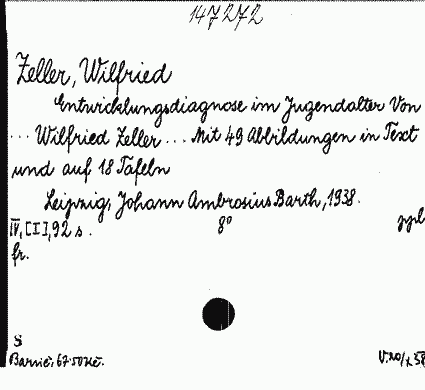 147272
Zeller, Wilfried
Entwicklungsdiagnose im Jugendalter Von
... Wilfried Zeller ... Mit 49 Abbildungen in Text
und auf 18 Tafeln
Leipzig, Johann Ambrosius Barth, 1938.
IV, [I], 92 s. 8°
fr.
S